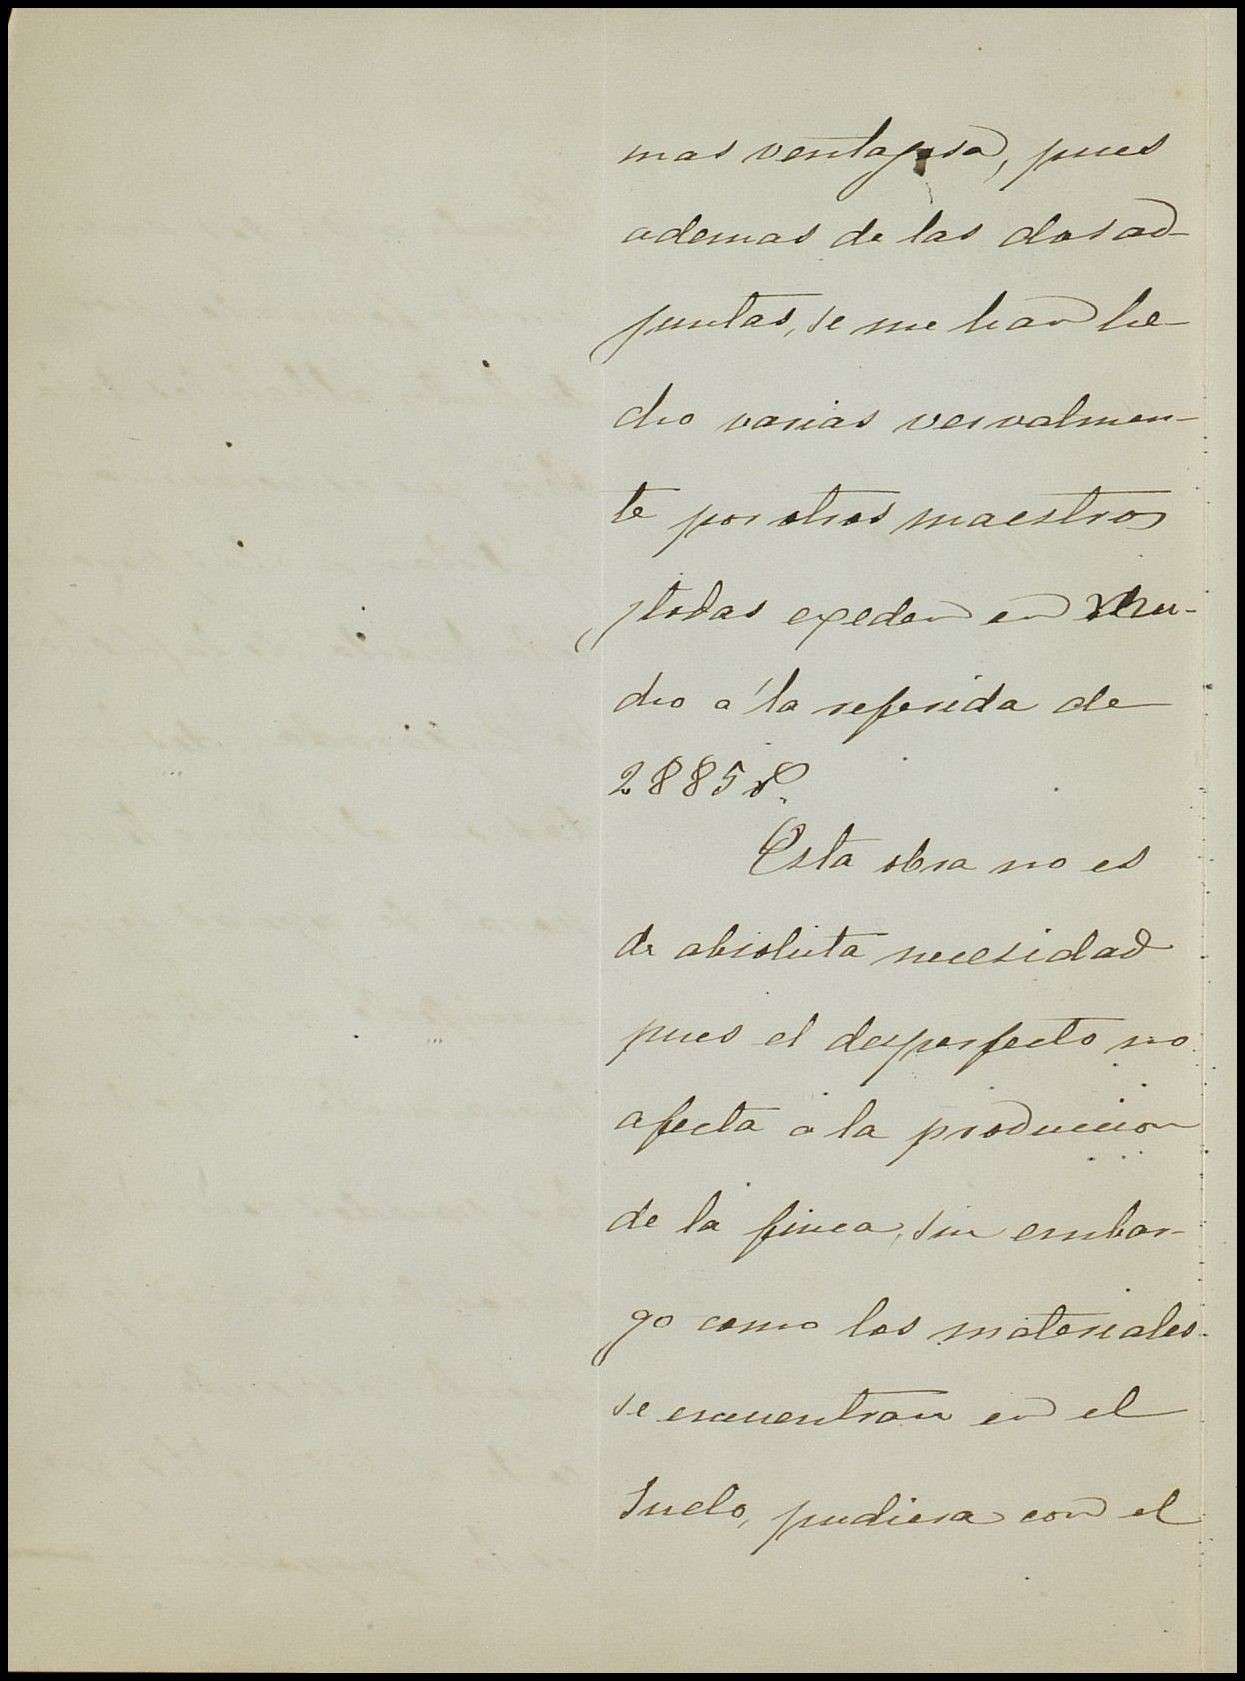 mas ventajosa, pues
ademas de las dos ad-
juntas, se me han he-
cho varias vervalmen-
te por otros maestros
y todas exeden en mu-
cho a la referida de
2885
Esta obra no es
de absoluta necesidad
pues el desperfecto no
afecta a la produccion
de la finca, sin embar-
go como los materiales
se encuentran en el
suelo, pudiera con el